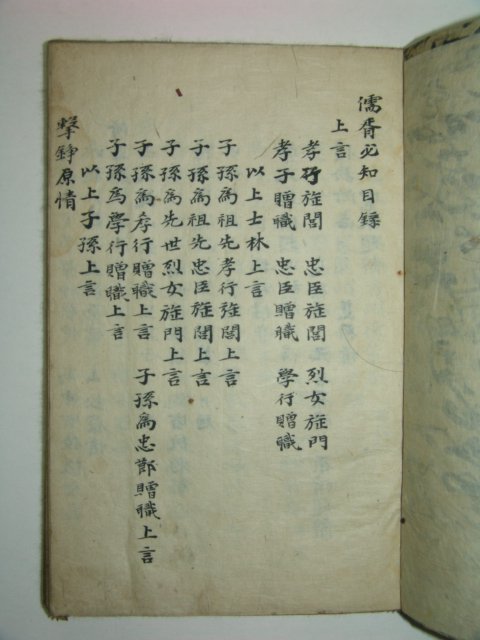 儒胥必知目錄
上言
孝行旌閭 忠臣旌閭 烈女旌門
孝子贈職 忠臣贈職 學行贈職
以上士林上言
子孫爲祖先孝行旌閭上言
子孫爲祖先忠臣旌閭上言
子孫爲先世烈女旌門上言
子孫爲孝行贈職上言 子孫爲忠節贈職上言
子孫爲學行贈職上言
以上子孫上言
擊錚原情